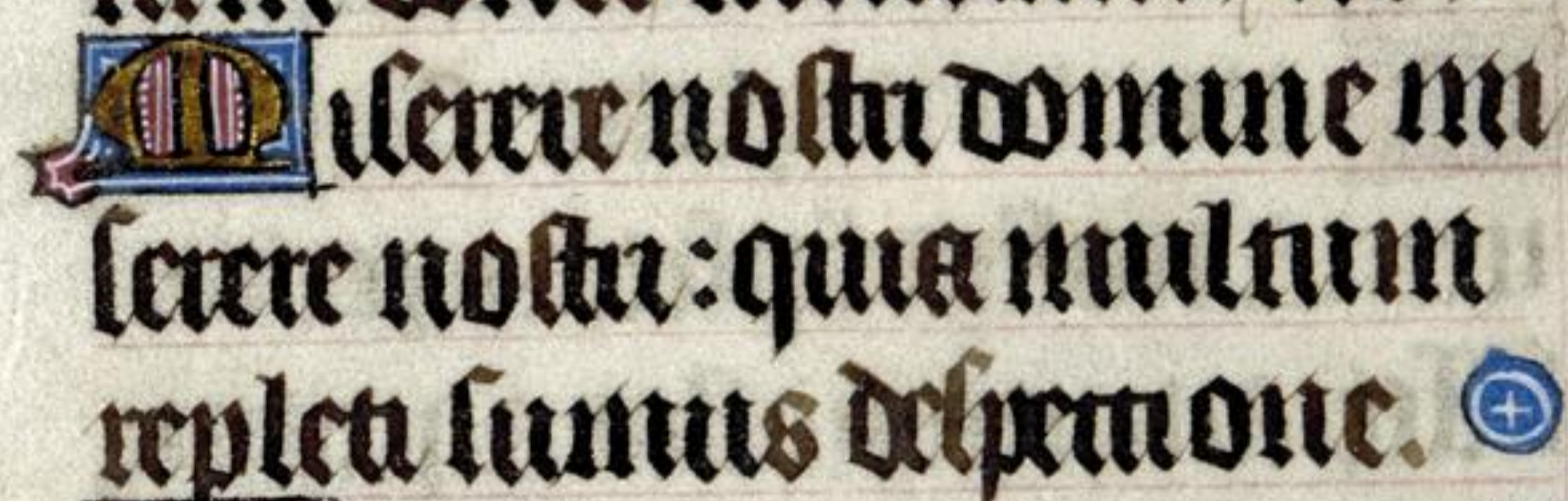 Miserere nostri domine mi
serere nostri : quia multum
repleti sumus despectione.